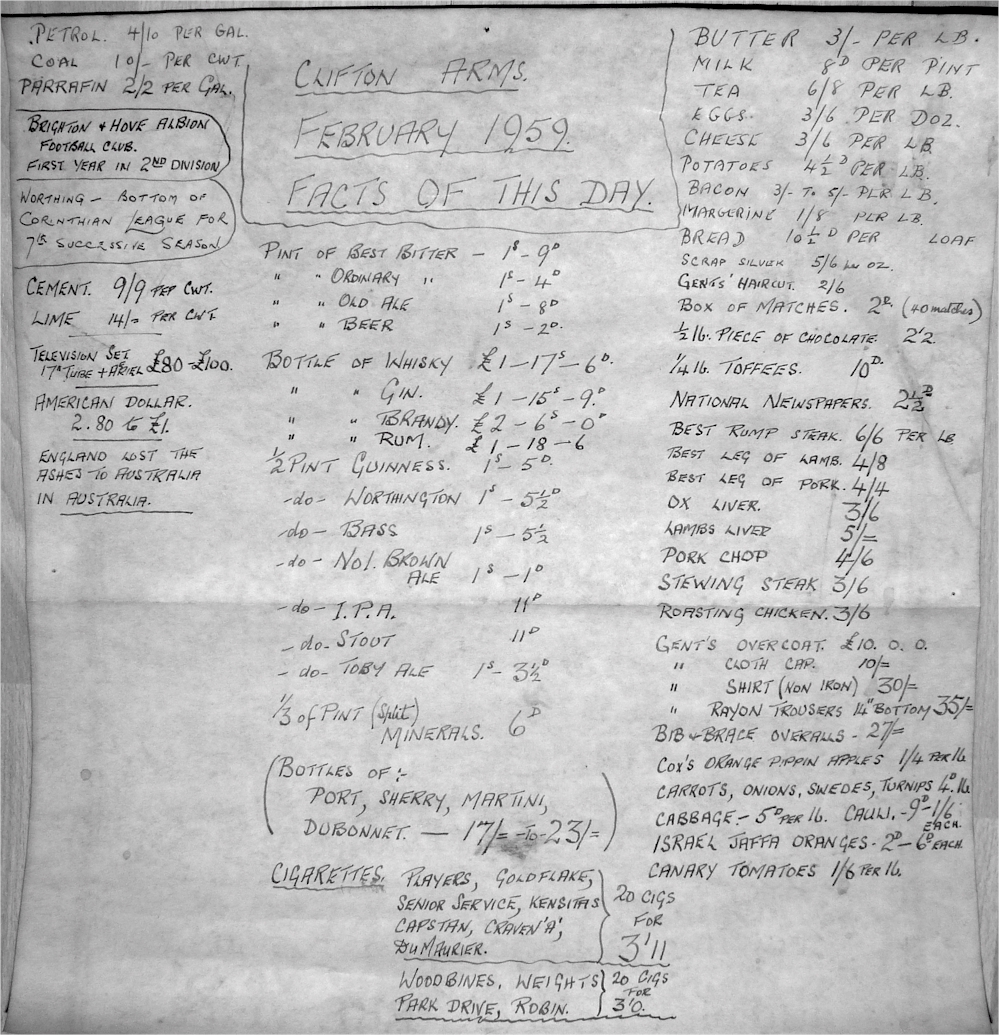 PETROL. 4/10 PER GAL.
COAL 10/- PER CWT.
PARRAFIN 2/2 PER GAL.
BRIGHTON & HOVE ALBION
FOOTBALL CLUB.
FIRST YEAR IN 2ND DIVISION
WORTHING – BOTTOM OF
CORINTHIAN LEAGUE FOR
7th SUCCESSIVE SEASON
CEMENT. 9/9 PER CWT.
LIME 14/= PER CWT
TELEVISION SET
17" TUBE + ARIEL £80 – £100.
AMERICAN DOLLAR.
2.80 to £1.
ENGLAND LOST THE
ASHES TO AUSTRALIA
IN AUSTRALIA.
CLIFTON ARMS.
FEBRUARY 1959.
FACTS OF THIS DAY.
PINT OF BEST BITTER – 1S – 9D
" " ORDINARY " 1S – 4D
" " OLD ALE 1S – 8D
" " BEER 1S – 2D.
BOTTLE OF WHISKY £1 – 17S – 6D.
" " GIN. £1 – 15S – 9.D
" " BRANDY. £2 – 6S – 0D
" " RUM. £1 – 18 – 6
1/2 PINT GUINNESS. 1S – 5D.
-do- WORTHINGTON 1S – 5½D
-do- BASS 1S – 5½
-do- No1. BROWN
ALE 1S – 1D
-do- I.P.A. 11D
-do- STOUT 11D
-do- TOBY ALE 1S – 3½D
1/3 of PINT (Split)
MINERALS. 6D
(BOTTLES OF :-
PORT, SHERRY, MARTINI,
DUBONNET. — 17/= -To- 23/=)
CIGARETTES. PLAYERS, GOLDFLAKE,
SENIOR SERVICE, KENSITAS
CAPSTAN, CRAVEN 'A',
DU MAURIER.
20 CIGS
FOR
3'11
WOODBINES, WEIGHTS
PARK DRIVE, ROBIN.
20 CIGS
FOR
3'0.
BUTTER 3/- PER LB.
MILK 8D PER PINT
TEA 6/8 PER LB.
EGGS. 3/6 PER DOZ.
CHEESE 3/6 PER LB.
POTATOES 4½D PER LB.
BACON 3/- To 5/- PER LB.
MARGERINE 1/8 PER LB.
BREAD 10½D PER LOAF
SCRAP SILVER 5/6 oz.
GENTS' HAIRCUT. 2/6
BOX OF MATCHES. 2D. (40 matches)
½ lb. PIECE OF CHOCOLATE. 2'2
¼ lb. TOFFEES. 10D.
NATIONAL NEWSPAPERS. 2½D
BEST RUMP STEAK. 6/6 PER LB
BEST LEG OF LAMB. 4/8
BEST LEG OF PORK. 4/4
OX LIVER. 3/6
LAMBS LIVER 5/=
PORK CHOP 4/6
STEWING STEAK 3/6
ROASTING CHICKEN. 3/6
GENT'S OVERCOAT. £10. 0. 0.
" CLOTH CAP. 10/=
" SHIRT (NON IRON) 30/=
" RAYON TROUSERS 14" BOTTOM 35/=
BIB & BRACE OVERALLS - 27/=
COX'S ORANGE PIPPIN APPLES 1/4 PER lb
CARROTS, ONIONS, SWEDES, TURNIPS 4D. lb
CABBAGE. – 5D PER lb. CAULI. - 9D - 1/6
EACH.
ISRAEL JAFFA ORANGES - 2D – 6D EACH.
CANARY TOMATOES 1/6 PER lb.